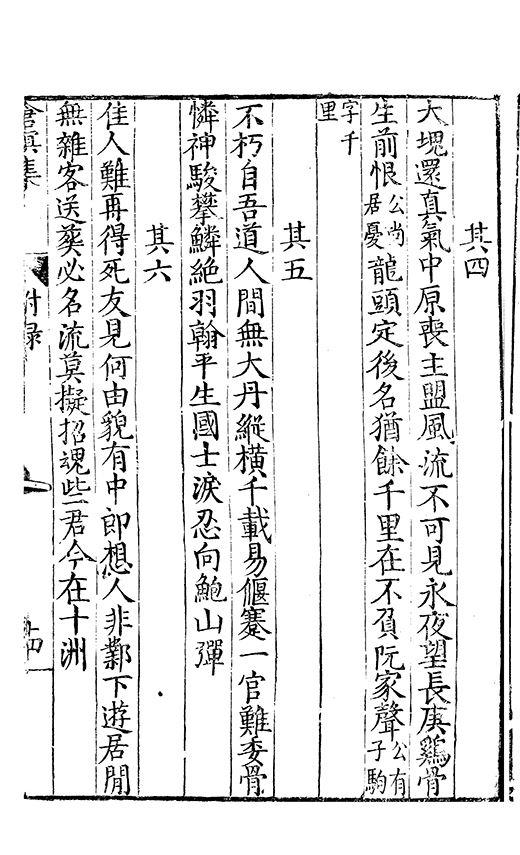 其四
大塊還真氣中原喪主盟風流不可見永夜望長庚鷄骨
生前恨公尚居憂龍頭定後名猶餘千里在不負阮家聲公有子駒
字千里
其五
不朽自吾道人間無大丹縱橫千載易偃蹇一官難委骨
憐神駿攀鱗絶羽翰平生國士淚忍向鮑山彈
其六
佳人難再得死友見何由貌有中郎想人非鄴下遊居閒
無雜客送葬必名流莫擬招魂些君今在十洲
滄溟集 附録 十四